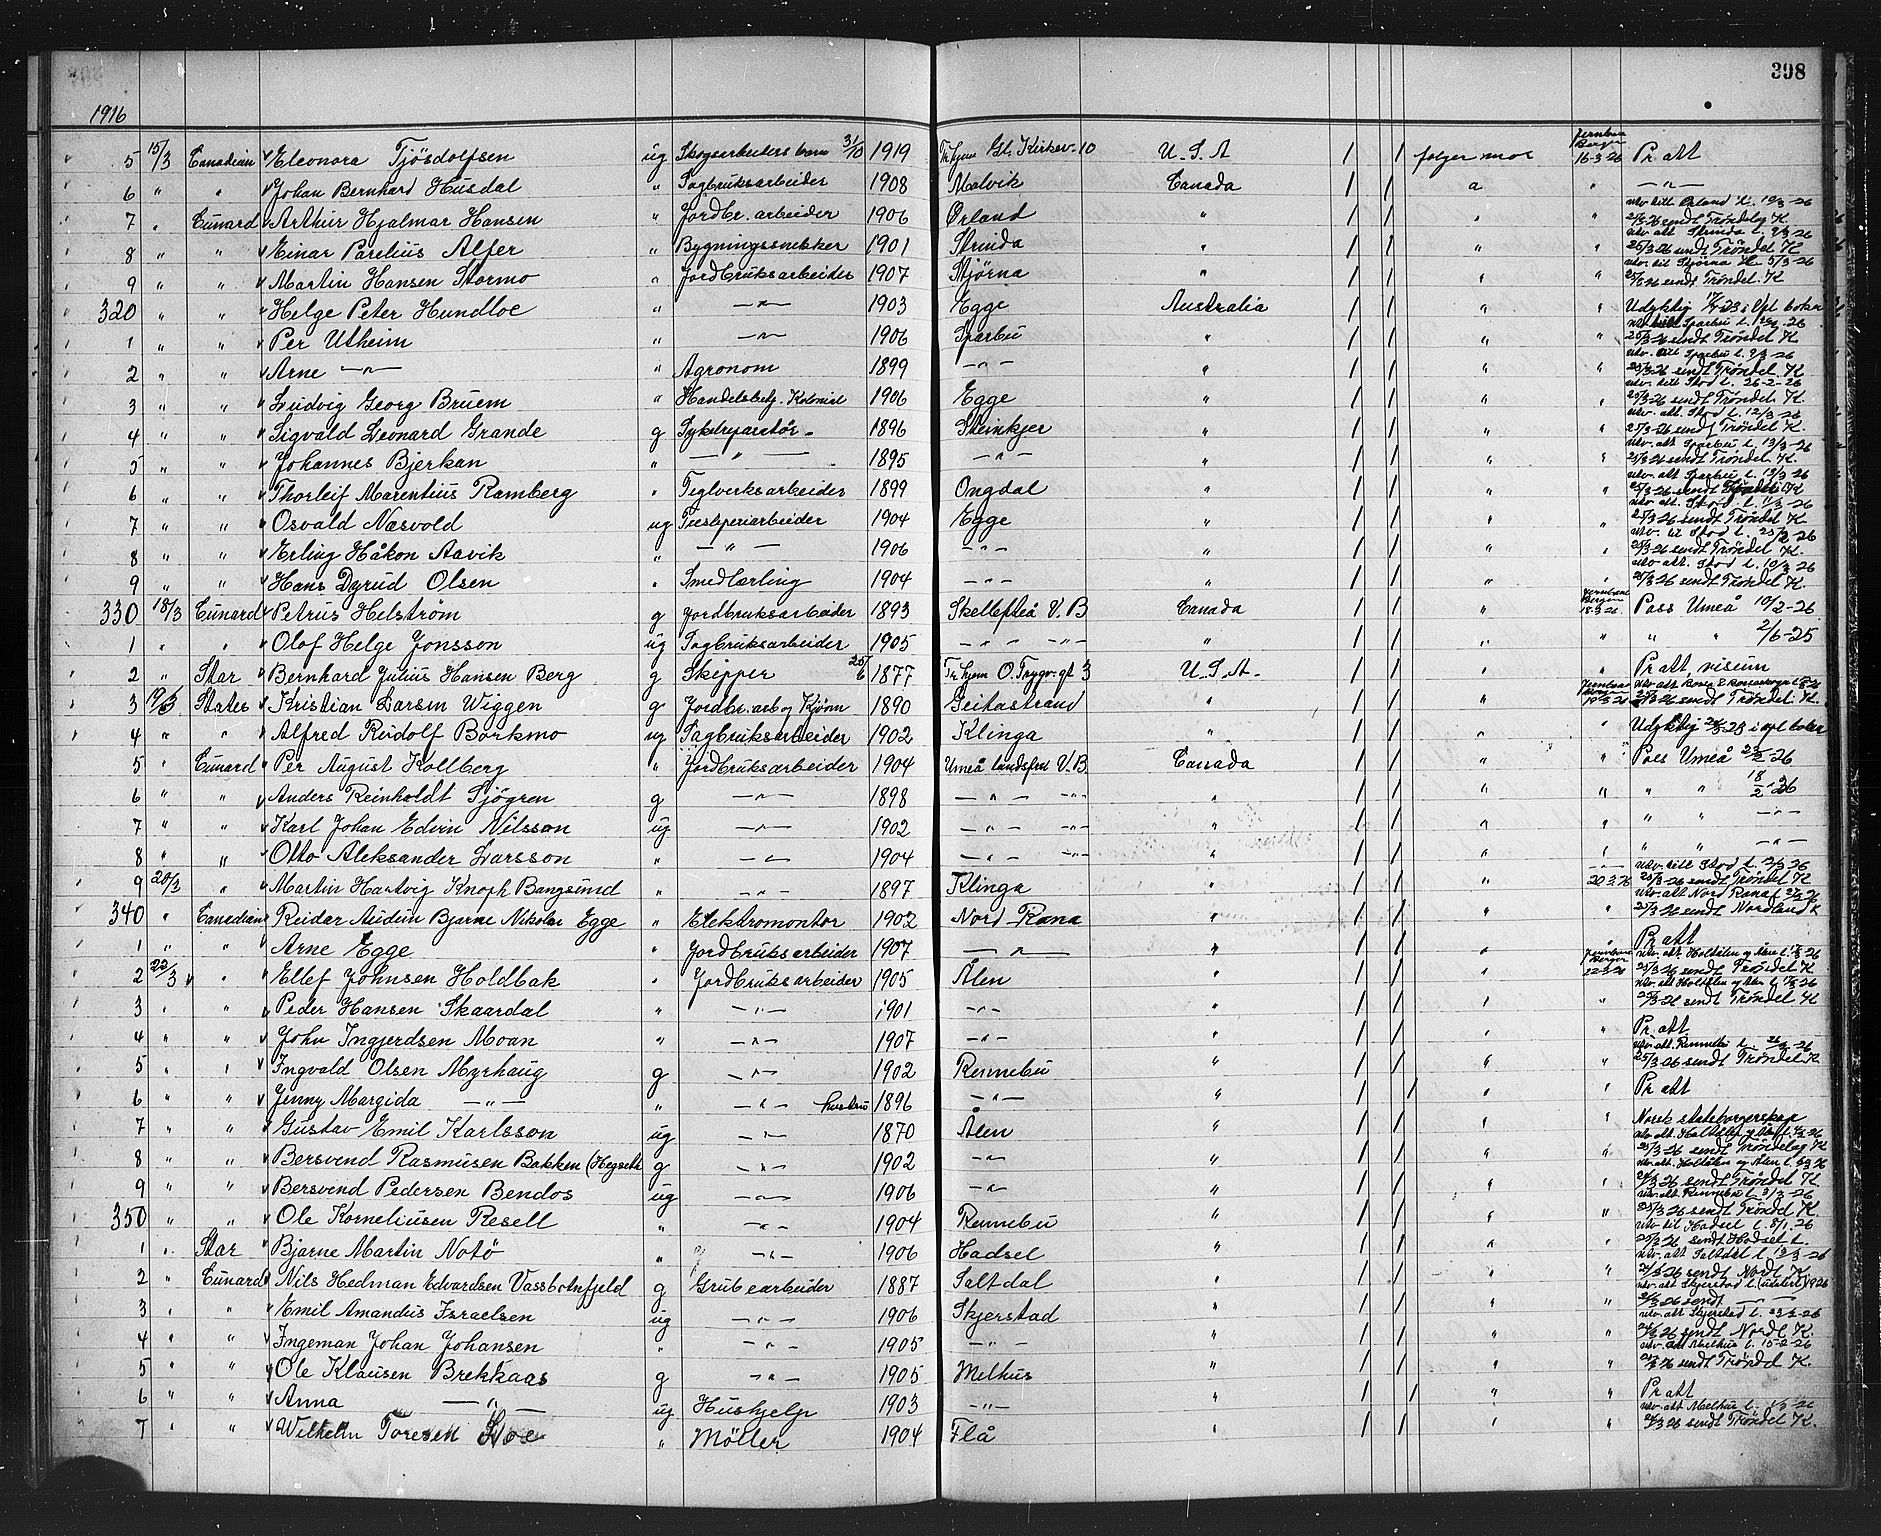 398
1916
5 15/3 Canadian Eleonora Tjösdolfsen ug Skogsarbeiders barn 3/10 1919 Tr.hjem Gl. Kirkev. 10 U.S.A 1 1 følger mor Jernbane Bergen 16-3 26 Pr att
6 " " Johan Bernhard Husdal " Sagbruksarbeider 1908 Malvik Canada 1 1 a " — " —
utv. till Ørland L. 26
7 " Cunard Arthur Hjalmar Hansen " Jordbr. arbeider 1906 Ørland " 1 1 " " 25/3-26 sendt Trøndelag K
utv. att Strinda L. 9/3 26
8 " " Einar Parelius Alfer " Bygningssnekker 1901 Strinda " 1 1 " " 25/3-26 sendt Tröndel K
utv. til Stjørna L. 5/3-26
9 " " Martin Hansen Stormo " Jordbruksarbeider 1907 Stjörna " 1 1 " " 25/3-26 sendt Tröndel. K
320 " " Helge Peter Hundloe " — " — 1903 Egge Australia 1 1 " " Udyktig i Vpl boken
utv. till Sparbu L. 26
1 " " Per Utheim " — " — 1906 Sparbu " 1 1 " " 25/3-26 sendt Tröndel K
utv. till Sparbu L. 9/3-26
2 " " Arne — " — " Agronom 1899 — " — " 1 1 " " 25/3-26 sendt Tröndel K
utv. till Stod L. 26-2-26
3 " " Ludvig Georg Bruem " Handelsbetj. Kolonial 1906 Egge " 1 1 " " 25/3-26 sendt Tröndel. K.
utv. att. Stod L. 12/3-26
4 " " Sigvald Leonard Grande g Sykelreparatør 1896 Steinkjer " 1 1 " " 25/3-26 sendt Tröndel K.
utv. att Sparbu L. 13/3-26
5 " " Johannes Bjerkan " — " — 1895 — " — " 1 1 " " 25/3-26 sendt Tröndel. K.
utv. att Sparbu L. 13/3-26
6 " " Thorleif Marentius Ramberg " Teglverksarbeider 1899 Ongdal " 1 1 " " 25/3-26 sendt Tröndel K
utv. att. Stod L. 26
7 " " Osvald Næsvold ug Træsliperiarbeider 1904 Egge " 1 1 " " 25/3-26 sendt Tröndel K
utv. til Stod L. 25/2-26
8 " " Erling Håkon Aavik " — " — 1906 — " — " 1 1 " " 25/3-26 sendt Tröndel K.
utv. att. Stod L. 10/3 26
9 " " Hans Dyrud Olsen " Smedlærling 1904 — " — " 1 1 " " 25/3-26 sendt Tröndel K.
330 18/3 Cunard Petrus Helström g Jordbruksarbeider 1893 Skellefteå V. B Canada 1 1 " Jernbane Bergen 18-3 26 Pass Umeå 10/2-26
1 " " Olof Helge Jonsson ug Sagbruksarbeider 1905 — " — " 1 1 " " " " 2/6-25
2 " Star Bernhard Julius Hansen Berg g Skipper 25/6 1877 Tr.hjem O. Trygv. gt 3 U.S.A. 1 1 " " Pr att, viseum
3 19/3 States Kristian Larsen Wiggen g Jordbr. arb og Kjörm 1890 Leitastrand " 1 1 " Jernbane Bergen 19-3 26 25/3-26 sendt Tröndel. K.
4 " " Alfred Rudolf Borkmo ug Sagbruksarbeider 1902 Klinga " 1 1 " " Udyktig i vpl boken
5 " Cunard Per August Kollberg " Jordbruksarbeider 1904 Umeå landsfrs V. B Canada 1 1 " " Pass Umeå 22/2-26
6 " " Anders Reinholdt Sjögren g — " — 1898 — " — — " — " 1 1 " " " " 18/2-26
7 " " Karl Johan Edvin Nilsson ug — " — 1902 — " — — " — " 1 1 " " " " — " —
8 " " Otto Aleksander Larsson " — " — 1904 — " — — " — " 1 1 " " " " — " —
utv. till Stod L. 26
9 20/3 " Martin Hartvig Knoph Bangsund " — " — 1897 Klinga " 1 1 " 20 3 26 25/3-26 sendt Tröndel K
utv. att Nord Rana L. 26
340 " Canadian Reidar Audun Bjarne Nikolai Egge " Elektromontør 1902 Nord Rana " 1 1 " " 25/3-26 sendt Nordland K
1 " " Arne Egge " Jordbruksarbeider 1907 — " — " 1 1 " " Pr att
utv. att Holtålen og Ålen L. 26
2 22/3 " Ellef Johnsen Holdbak " Jordbruksarbeider 1905 Ålen " 1 1 " Jernbane Bergen 22-3 26 25/3-26 sendt Tröndel K
utv. att Holtålen og Ålen L. 26
3 " " Peder Hansen Skaardal " — " — 1901 — " — " 1 1 " " 25/3-26 sendt Tröndel K
4 " " John Ingjerdsen Moan " — " — 1907 — " — " 1 1 " " Pr. att
utv. att. Rennebu L. 26
5 " " Ingvald Olsen Myrhaug g — " — 1902 Rennebu " 1 1 " " 25/3-26 sendt Tröndel K
6 " " Jenny Margida — " — " — " — hustru 1896 — " — " 1 1 " " Pr att
7 " " Gustav Emil Karlsson ug — " — 1870 Ålen " 1 1 " " Norsk statsborgerskap
utv. att. Holtålen og Ålen L. 26
8 " " Bersvend Rasmusen Bakken (Hegseth g — " — 1902 — " — " 1 1 " " 25/3-26 sendt Tröndelag K
utv. att. Holtålen og Ålen L. 26
9 " " Bersvend Pedersen Bendos ug — " — 1906 — " — " 1 1 " " 25/3-26 sendt Tröndel K
utv. att Rennebu L. 3/3-26
350 " " Ole Korneliusen Resell " — " — 1904 Rennebu " 1 1 " " 25/3-26 sendt Tröndel K.
utv. till Hadsel L. 8/1. 26
1 " Star Bjarne Martin Notö " — " — 1906 Hadsel " 1 1 " " 25/3-26 sendt Hadsel L.
utv. att Saltdal L. 26
2 " Cunard Nils Hedman Edvardsen Vassbotnfjeld g Grubearbeider 1887 Saltdal " 1 1 " " 26 sendt Nordl K
utv. att Skjerstad L. (udatert) 1926
3 " " Emil Amandus Israelsen ug — " — 1906 Skjerstad " 1 1 " " 26 sendt — " —
utv. att Skjerstad L. 23/2-26
4 " " Ingeman Johan Johansen " — " — 1905 — " — " 1 1 " " 26 sendt Nordl K.
utv. att Melhus L. 15-2-26
5 " " Ole Klausen Brekkaas g — " — 1905 Melhus " 1 1 " " 26 sendt Tröndel K.
6 " " Anna — " — ug Hushjelp 1903 — " — " 1 1 " " Pr att
utv. att Melhus L. 26
7 " " Wilhelm Toresen Loe " Möller 1904 Flå " 1 1 " " 26 sendt Tröndel K.